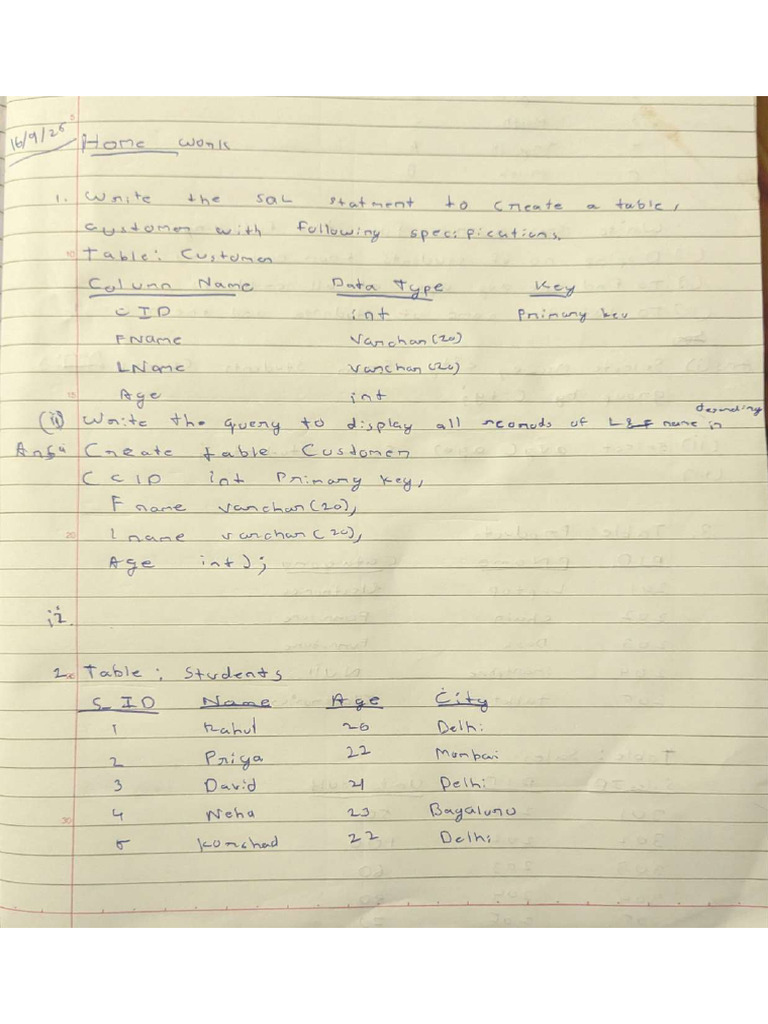 16/9/25 Home work
1. Write the SQL statment to create a table,
customer with following specifications.
Table: Customer
Column Name Data Type Key
CID int Primary key
FName Varchar(20)
LName varchar(20)
Age int
(ii) Write the query to display all records of L & F name in
Ans:- Create table Customer
( CID int Primary key,
F name varchar(20),
l name varchar(20),
Age int);
ii.
2. Table: Students
S_ID Name Age City
1 Rahul 20 Delhi
2 Priya 22 Mumbai
3 David 21 Delhi
4 Neha 23
5 22 Delhi